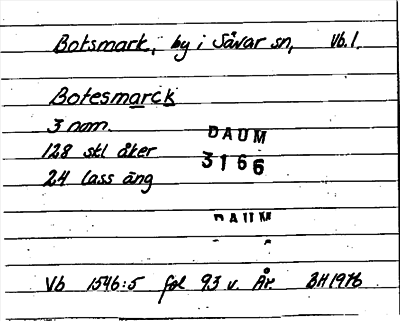 Botsmark, by i Sävar sn, Vb. l.
Botesmarck
3 nom.
DAUM
128 skl åker
3166
24 lass äng
DAUM
Vb 1546:5 fol 93 v. År. BH 1976